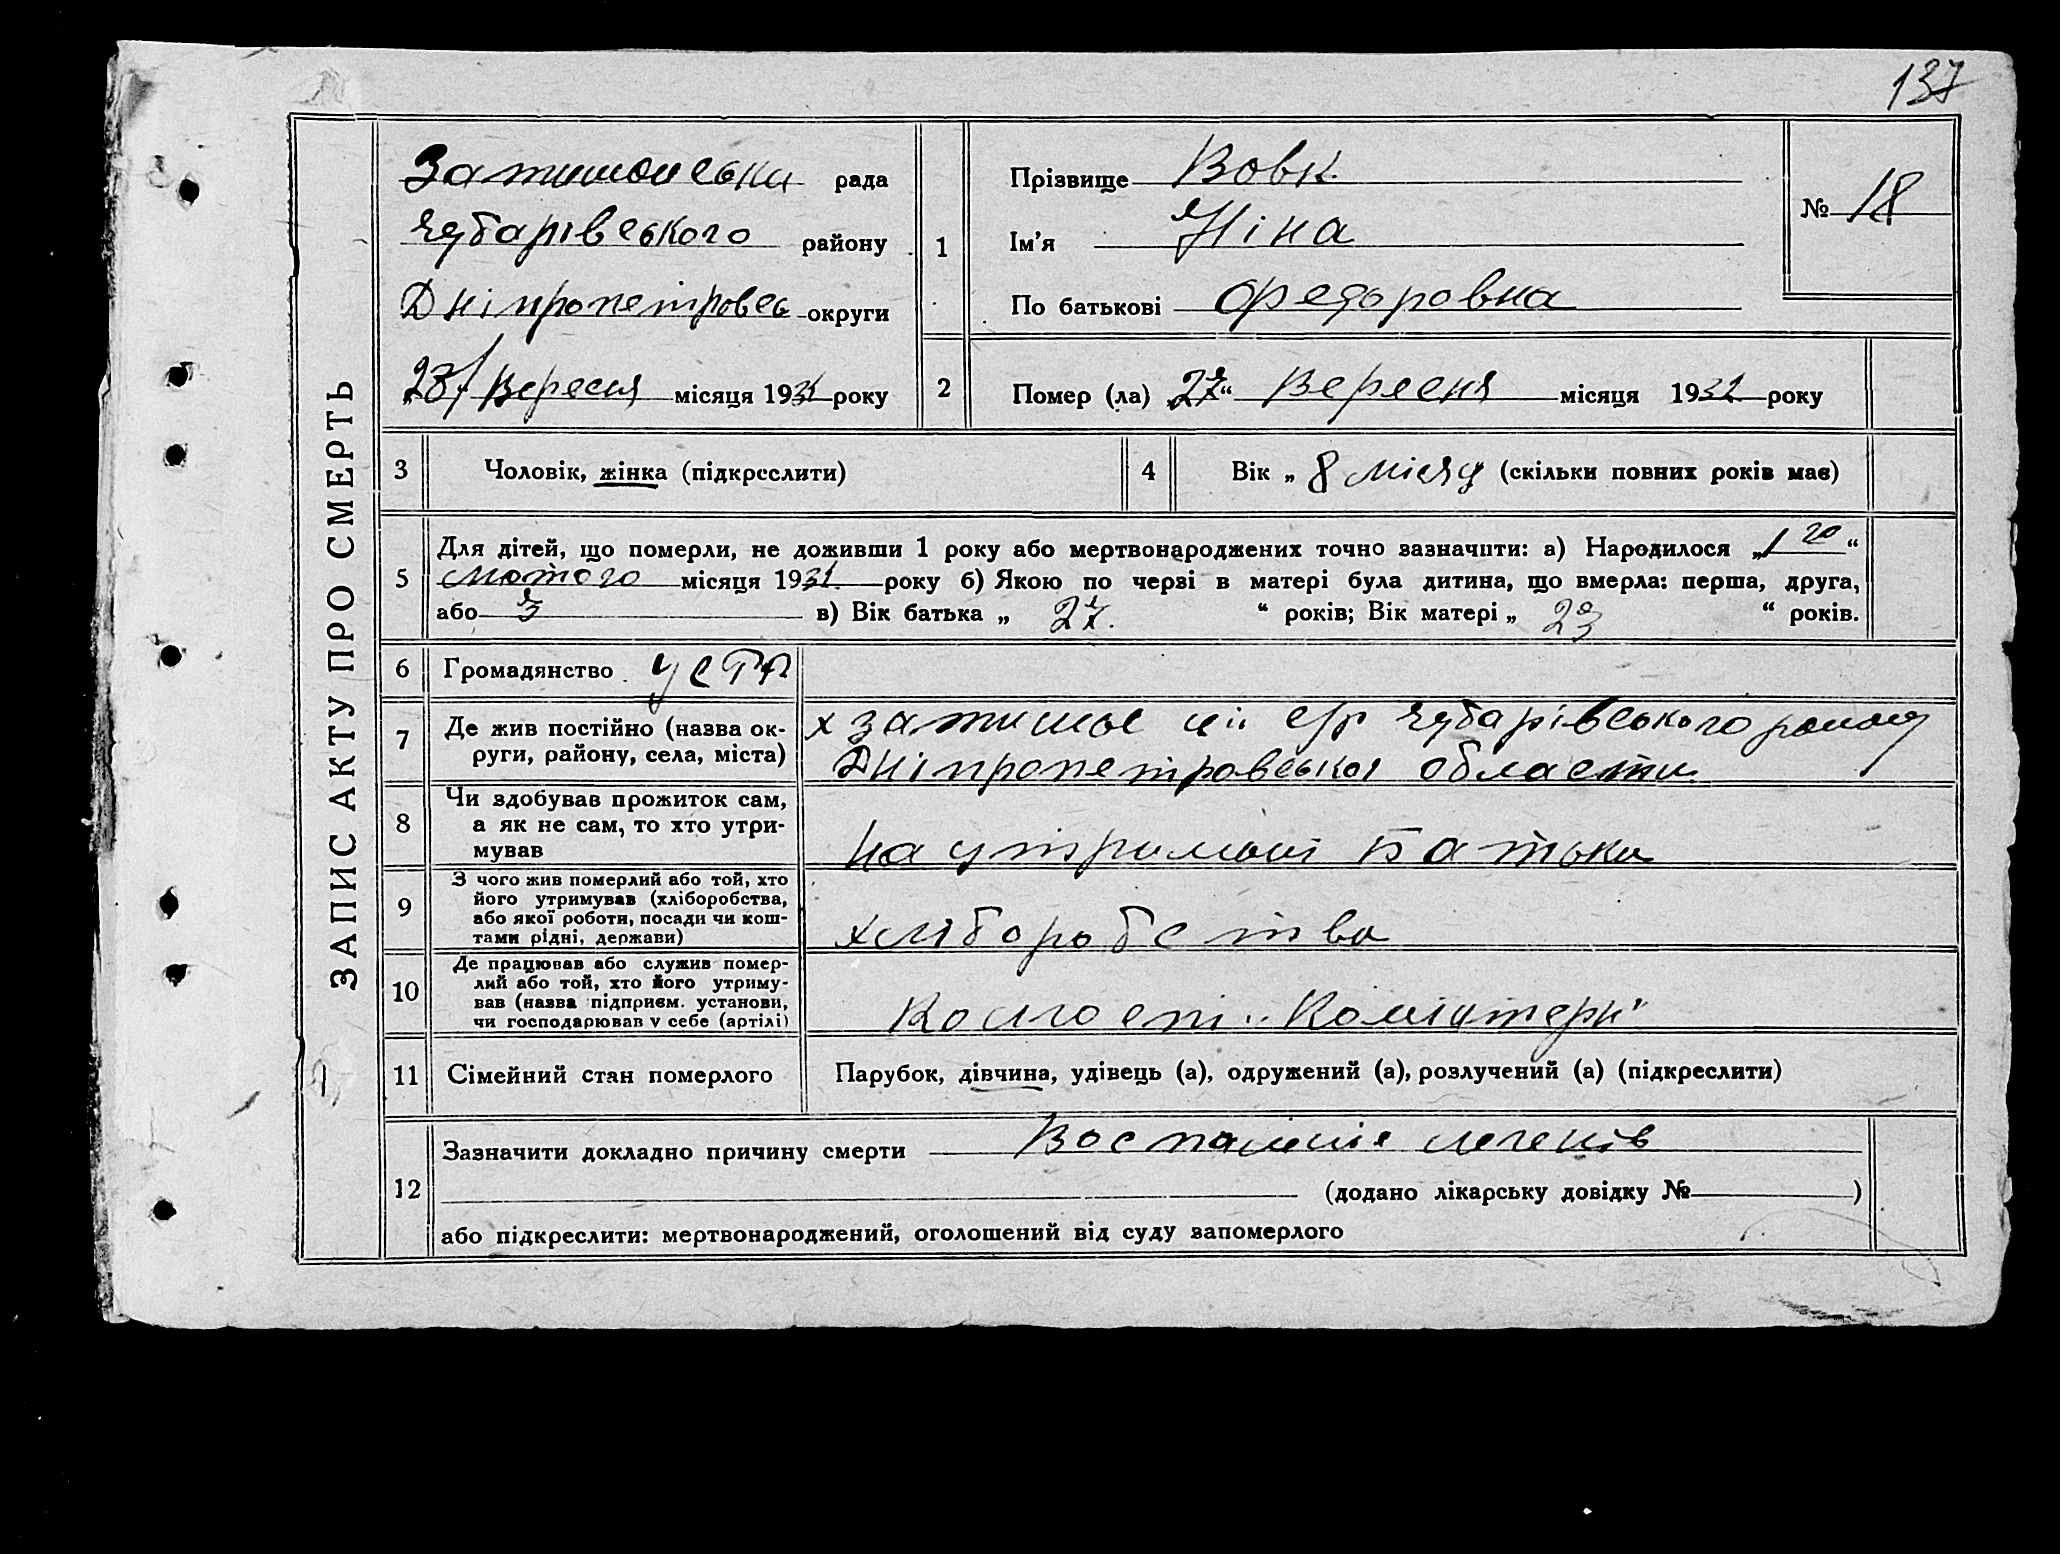 137
ЗАПИС АКТУ ПРО СМЕРТЬ
Затишанська рада
Чубарівського району
Дніпропетровсь округи
28/Вересня місяця 1932 року
1
Прізвище Вовк
Ім’я Ніна
По батькові Федоровна
№ 18
2
Помер (ла) 27“ Вересня місяця 1932 року
3 Чоловік, жінка (підкреслити)
4 Вік „ 8 місяц (скільки повних років має)
5 Для дітей, що померли, не доживши 1 року або мертвонароджених точно зазначити: а) Народилося „1го“
лютого місяця 1932 року б) Якою по черві в матері була дитина, що вмерла: перша, друга,
або 3 в) Вік батька „ 27. “ років; Вік матері „ 23 “ років.
6 Громадянство УСРР
7 Де жив постійно (назва округи, району, села, міста)
х Затишье с/р Чубарівського району
Дніпропетровської области
8 Чи здобував прожиток сам,
а як не сам, то хто утри-
мував
на утримані Батька
9 З чого жив померлий або той, хто
його утримував (хліборобства,
або якої роботи, посади чи кош-
тами рідні, держави)
хліборобства
10 Де працював або служив помер-
лий або той, хто його утриму-
вав (назва підприєм. установи,
чи господарював у себе (артілі)
Колгоспі „Комінтерн“
11 Сімейний стан померлого
Парубок, дівчина, удівець (а), одружений (а), розлучений (а) (підкреслити)
12 Зазначити докладно причину смерти Воспаління легенів
(додано лікарську довідку № )
або підкреслити: мертвонароджений, оголошений від суду запомерлого